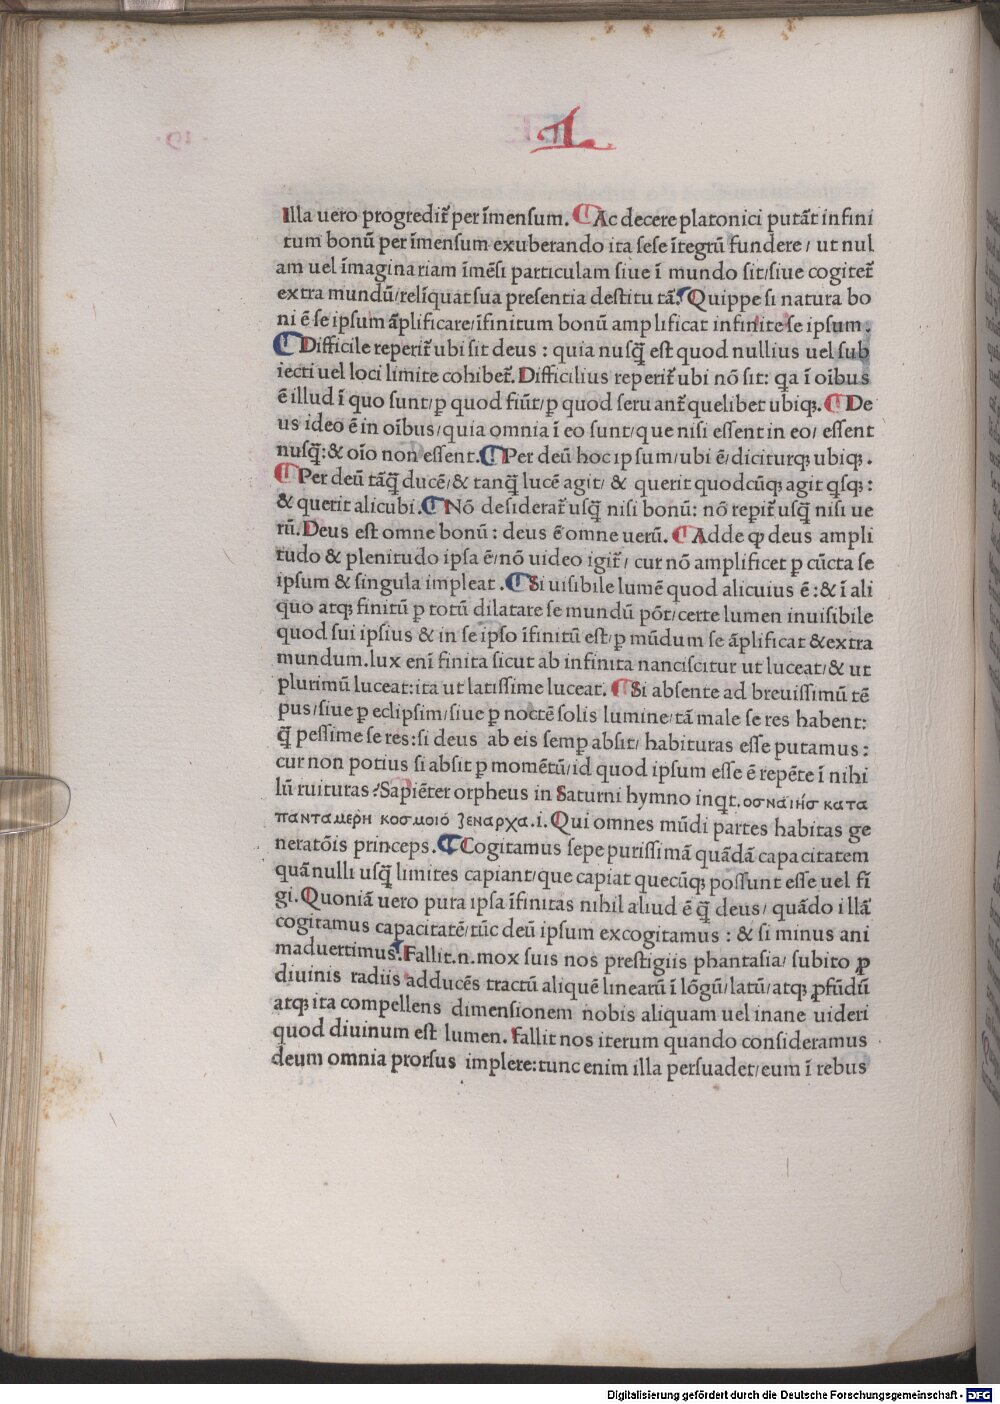 1
Illa uero progredit᷑ per īmensum. ¶ Ac decere platonici putāt infini
tum bonū per īmensum exuberando ita sese ītegrū fundere/ ut nul
am uel īmaginariam īmēsi particulam siue ī mundo sit/siue cogitet᷑
extra mundū/relīquat sua presentia destitutā. Quippe si natura bo
ni ē se ipsum āplificare/īfinitum bonū amplificat infinite se ipsum.
¶ Difficile reperit᷑ ubi sit deus: quia nusq̄ est quod nullius uel sub
iecti uel loci limite cohibet᷑. Difficilius reperit᷑ ubi nō sit: qa ī oībus
ē illud ī quo sunt/ꝑ quod fiūt/ꝑ quod seruant᷑ quelibet ubiqꝫ. ¶ De
us ideo ē in oībus/quia omnia ī eo sunt/que nisi essent in eo/ essent
nusq̄:& oīo non essent. ¶ Per deū hoc ipsum/ubi ē/diciturqꝫ ubiqꝫ.
¶ Per deū tāq̄ ducē/& tanq̄ lucē agit/ & querit quodcūqꝫ agit qsqꝫ:
& querit alicubi. ¶ Nō desiderat᷑ usq̄ nisi bonū: nō reꝑit᷑ usq̄ nisi ue
rū. Deus est omne bonū: deus ē omne uerū. ¶ Adde ꝙ deus ampli
tudo & plenitudo ipsa ē/nō uideo igit᷑/ cur nō amplificet ꝑ cūcta se
ipsum & singula impleat. ¶ Si uisibile lumē quod alicuius ē:& ī ali
quo atqꝫ finitū ꝑ totū dilatare se mundū pōt/certe lumen inuisibile
quod sui ipsius & in se ipso īfinitū est/ꝑ mūdum se āplificat &extra
mundum.lux enī finita sicut ab infinita nanciscitur ut luceat/& ut
plurimū luceat:ita ut latissime luceat. ¶ Si absente ad breuissimū tē
pus/siue ꝑ eclipsim/siue ꝑ noctē solis lumine/tā male se res habent:
q̄ pessime se res:si deus ab eis semꝑ absit/ habituras esse putamus:
cur non potius si absit ꝑ momētū/id quod ipsum esse ē repēte ī nihi
lū ruituras? Sapiēter orpheus in Saturni hymno inqt. οσναιησ κατα
πανταμερη κοσμοιό ξεναρχα.i. Qui omnes mūdi partes habitas ge
neratōis princeps. ¶ Cogitamus sepe purissimā quādā capacitatem
quā nulli usq̄ limites capiant/que capiat quecūqꝫ possunt esse uel fī
gi. Quoniā uero pura ipsa īfinitas nihil aliud ē q̄ deus/ quādo illā
cogitamus capacitatē/tūc deū ipsum excogitamus: & si minus ani
maduertimus. Fallit.n.mox suis nos prestigiis phantasia/ subito ꝓ
diuinis radiis adducēs tractū aliquē linearū ī lōgū/latū/atqꝫ ꝓfūdū
atqꝫ ita compellens dimensionem nobis aliquam uel inane uideri
quod diuinum est lumen. Fallit nos iterum quando consideramus
deum omnia prorsus implere:tunc enim illa persuadet/eum ī rebus
Digitalisierung gefördert durch die Deutsche Forschungsgemeinschaft - DFG